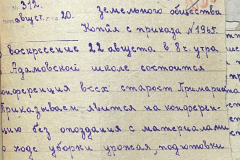 № 312.
август. 20. Земельного общества
Копия с приказа № 1945.
Воскресение 22 августа в 8 ч. утра
Адамовской школе состоится
конференция всех старост Примарии
Приказываем явится на конферен-
цию без опоздания с материалами
о ходе уборки урожая подготовки